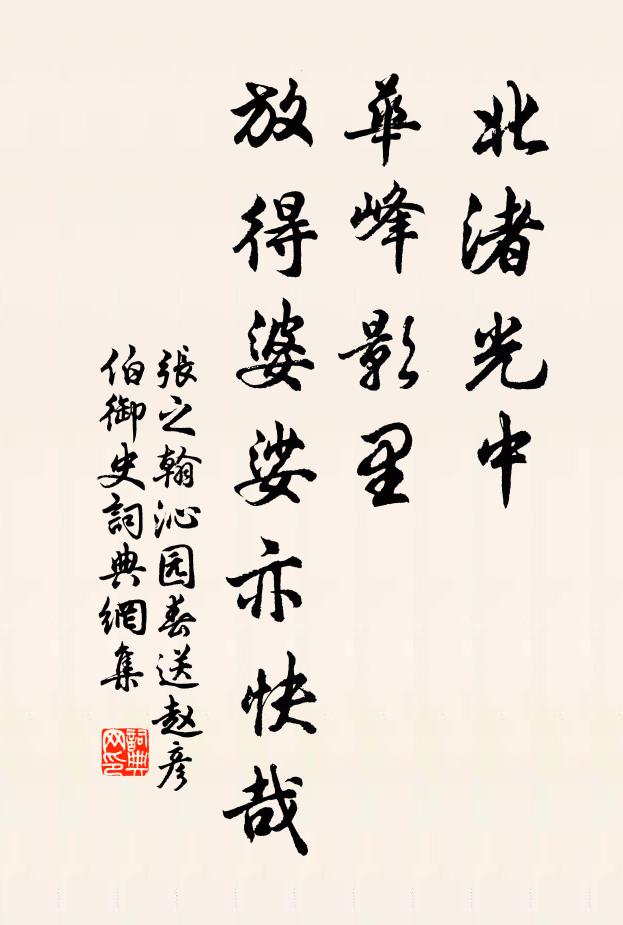 北渚光中
華峰影里
放得婆娑亦快哉
張之翰沁园春送赵彦
伯御史詞典網集
詞典网印